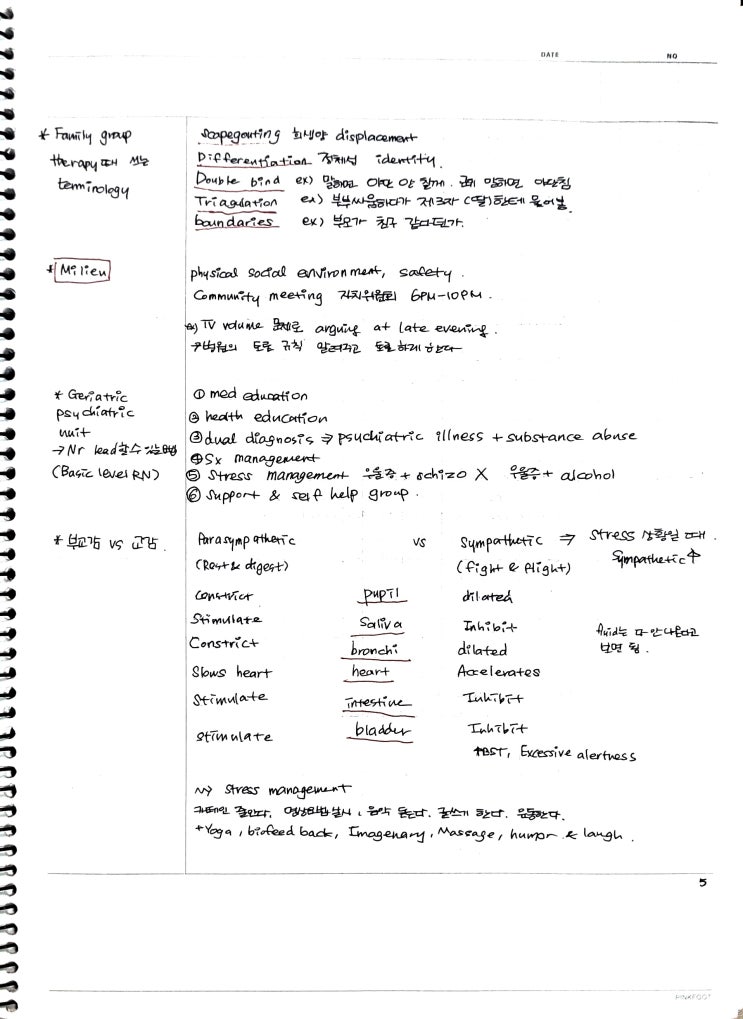 DATE NO
* Family group
therapy때 쓰는
terminology
scapegoating 희생양 displacement
Differentiation 정체성 identity.
Double bind ex) 말하면 야단 안 칠게. 근데 말하면 야단침
Triagulation ex) 부부싸움하다가 제3자 (딸)한테 물어봄.
boundaries ex) 부모가 친구 같다던가.
* Milieu
physical social environment, safety.
Community meeting 자치위원회 6PM-10PM.
ex) TV volume 문제로 arguing at late evening.
병원의 토론 규칙 알려주고 토론하게 한다
* Geriatric
psychiatric
unit
→ Nr lead할 수 있는
(Basic level RN)
① med education
② health education
③ dual diagnosis ⇒ psychiatric illness + substance abuse
④ Sx management
⑤ Stress management 우울증 + schizo X 우울증 + alcohol
⑥ Support & self help group.
* 부교감 vs 교감.
Parasympathetic vs Sympathetic ⇒ Stress 상황일 때.
(Rest & digest) (fight & flight) Sympathetic↑
Constrict pupil dilated
Stimulate Saliva Inhibit fluid는 다 안나온다고
Constrict bronchi dilated 보면 됨.
Slows heart heart Accelerates
Stimulate intestine Inhibit
Stimulate bladder Inhibit
↑BST, Excessive alertness
~> Stress management
카페인 줄인다. 명상요법 실시, 음악 듣는다. 글쓰기 한다. 운동한다.
+Yoga, biofeed back, Imagenary, Massage, humor & laugh.
5
PINKFOOT